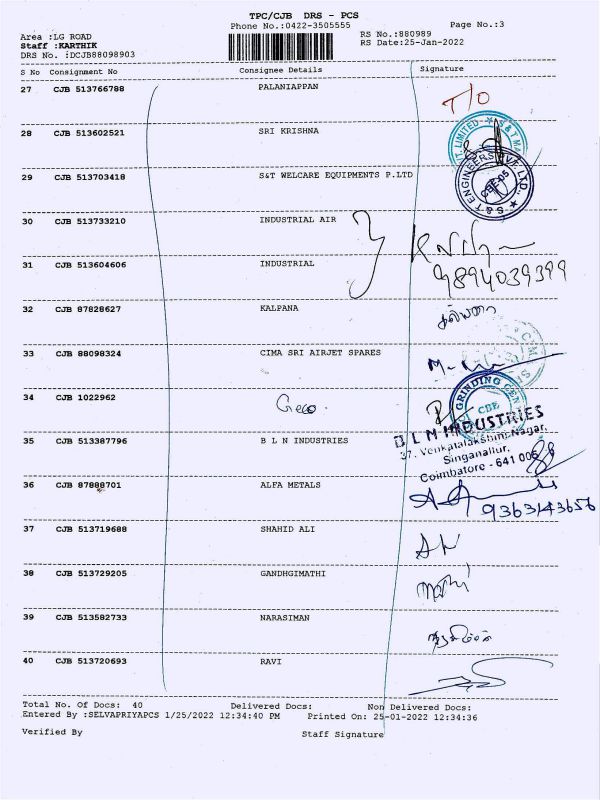 TPC/CJB DRS - PCS
Phone No.:0422-3505555 Page No.:3
Area :LG ROAD RS No.:880989
Staff :KARTHIK RS Date:25-Jan-2022
DRS No. :DCJB88098903
S No Consignment No Consignee Details Signature
27 CJB 513766788 PALANIAPPAN T/O
28 CJB 513602521 SRI KRISHNA
29 CJB 513703418 S&T WELCARE EQUIPMENTS P.LTD
S&T ENGINEERS PVT. LTD.,
30 CJB 513733210 INDUSTRIAL AIR
31 CJB 513604606 INDUSTRIAL 9894039399
32 CJB 87828627 KALPANA கல்பனா
33 CJB 88098324 CIMA SRI AIRJET SPARES
34 CJB 1022962 Geco
GRINDING CBE
35 CJB 513387796 B L N INDUSTRIES
B L N INDUSTRIES
37, Venkatalakshmi Nagar,
Singanallur,
Coimbatore - 641 005
36 CJB 87888701 ALFA METALS 9363143656
37 CJB 513719688 SHAHID ALI
38 CJB 513729205 GANDHGIMATHI
39 CJB 513582733 NARASIMAN
40 CJB 513720693 RAVI
Total No. Of Docs: 40 Delivered Docs: Non Delivered Docs:
Entered By :SELVAPRIYAPCS 1/25/2022 12:34:40 PM Printed On: 25-01-2022 12:34:36
Verified By Staff Signature